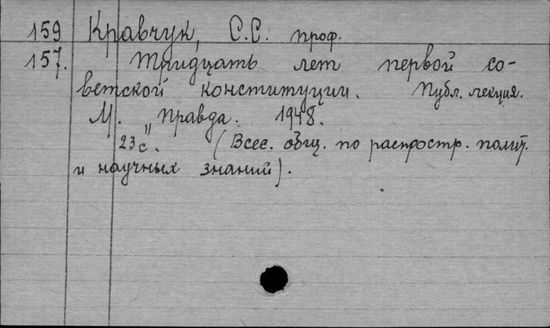 159 Кравчук, С.С. проф.
157. Тридцать лет первой со-
ветской конституции. Публ. лекция.
М. "Правда. 1948.
23 с. (Всес. общ. по распростр. полит.
и научных знаний).